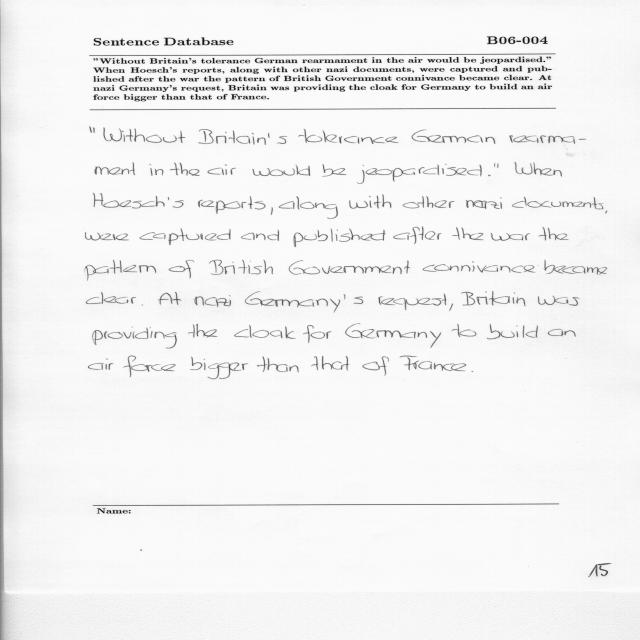 Sentence Database B06-004
"Without Britain's tolerance German rearmament in the air would be jeopardised."
When Hoesch's reports, along with other nazi documents, were captured and pub-
lished after the war the pattern of British Government connivance became clear. At
nazi Germany's request, Britain was providing the cloak for Germany to build an air
force bigger than that of France.
"Without Britain's tolerance German rearma-
ment in the air would be jeopardised." When
Hoesch's reports, along with other nazi documents,
were captured and published after the war the
pattern of British Government connivance became
clear. At nazi Germany's request, Britain was
providing the cloak for Germany to build an
air force bigger than that of France.
Name:
15